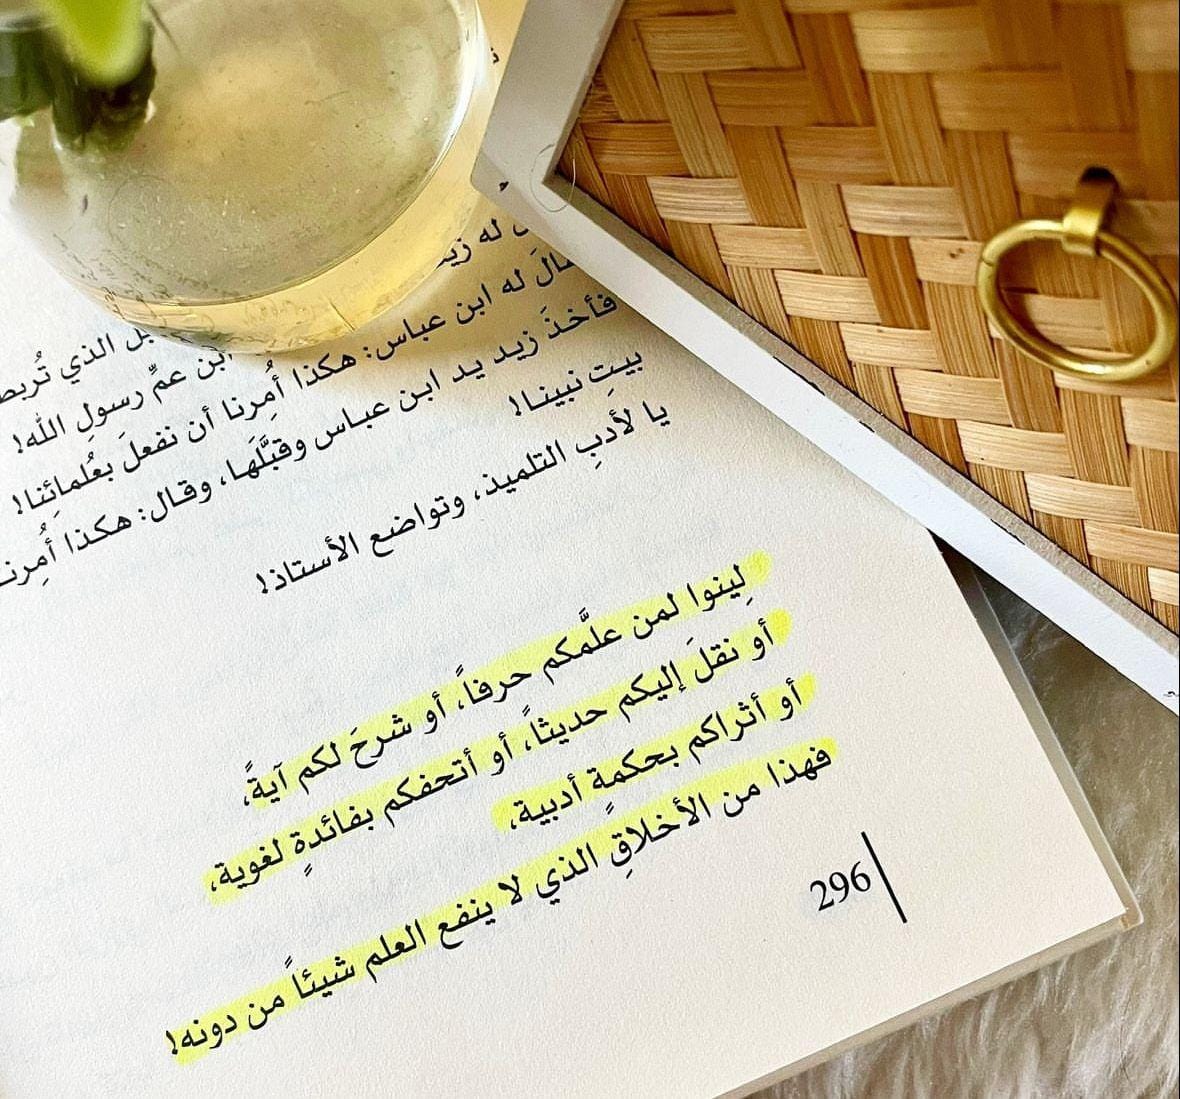 له زيد
الذي تُربط
قالَ له ابن عباس: هكذا أُمِرنا أن نفعلَ بعُلمائِنا!
ابن عمِّ رسولِ الله!
فأخذَ زيد يد ابن عباس وقبَّلَها، وقال: هكذا أُمِرنا
بيتِ نبينا!
يا لأدبِ التلميذ، وتواضع الأستاذ!
لِينوا لمن علَّمكم حرفاً، أو شرحَ لكم آيةً،
أو نقلَ إليكم حديثاً، أو أتحفكم بفائدةٍ لغوية،
أو أثراكم بحكمة أدبية،
فهذا من الأخلاقِ الذي لا ينفع العلم شيئاً من دونه!
296